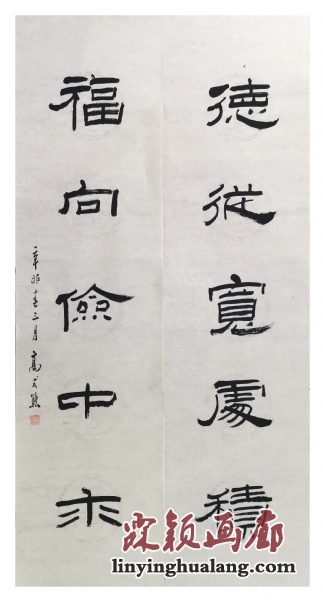 德從寬處積
福向儉中求
辛卯十 月 高式熊
霖颖画廊
linyinghualang.com